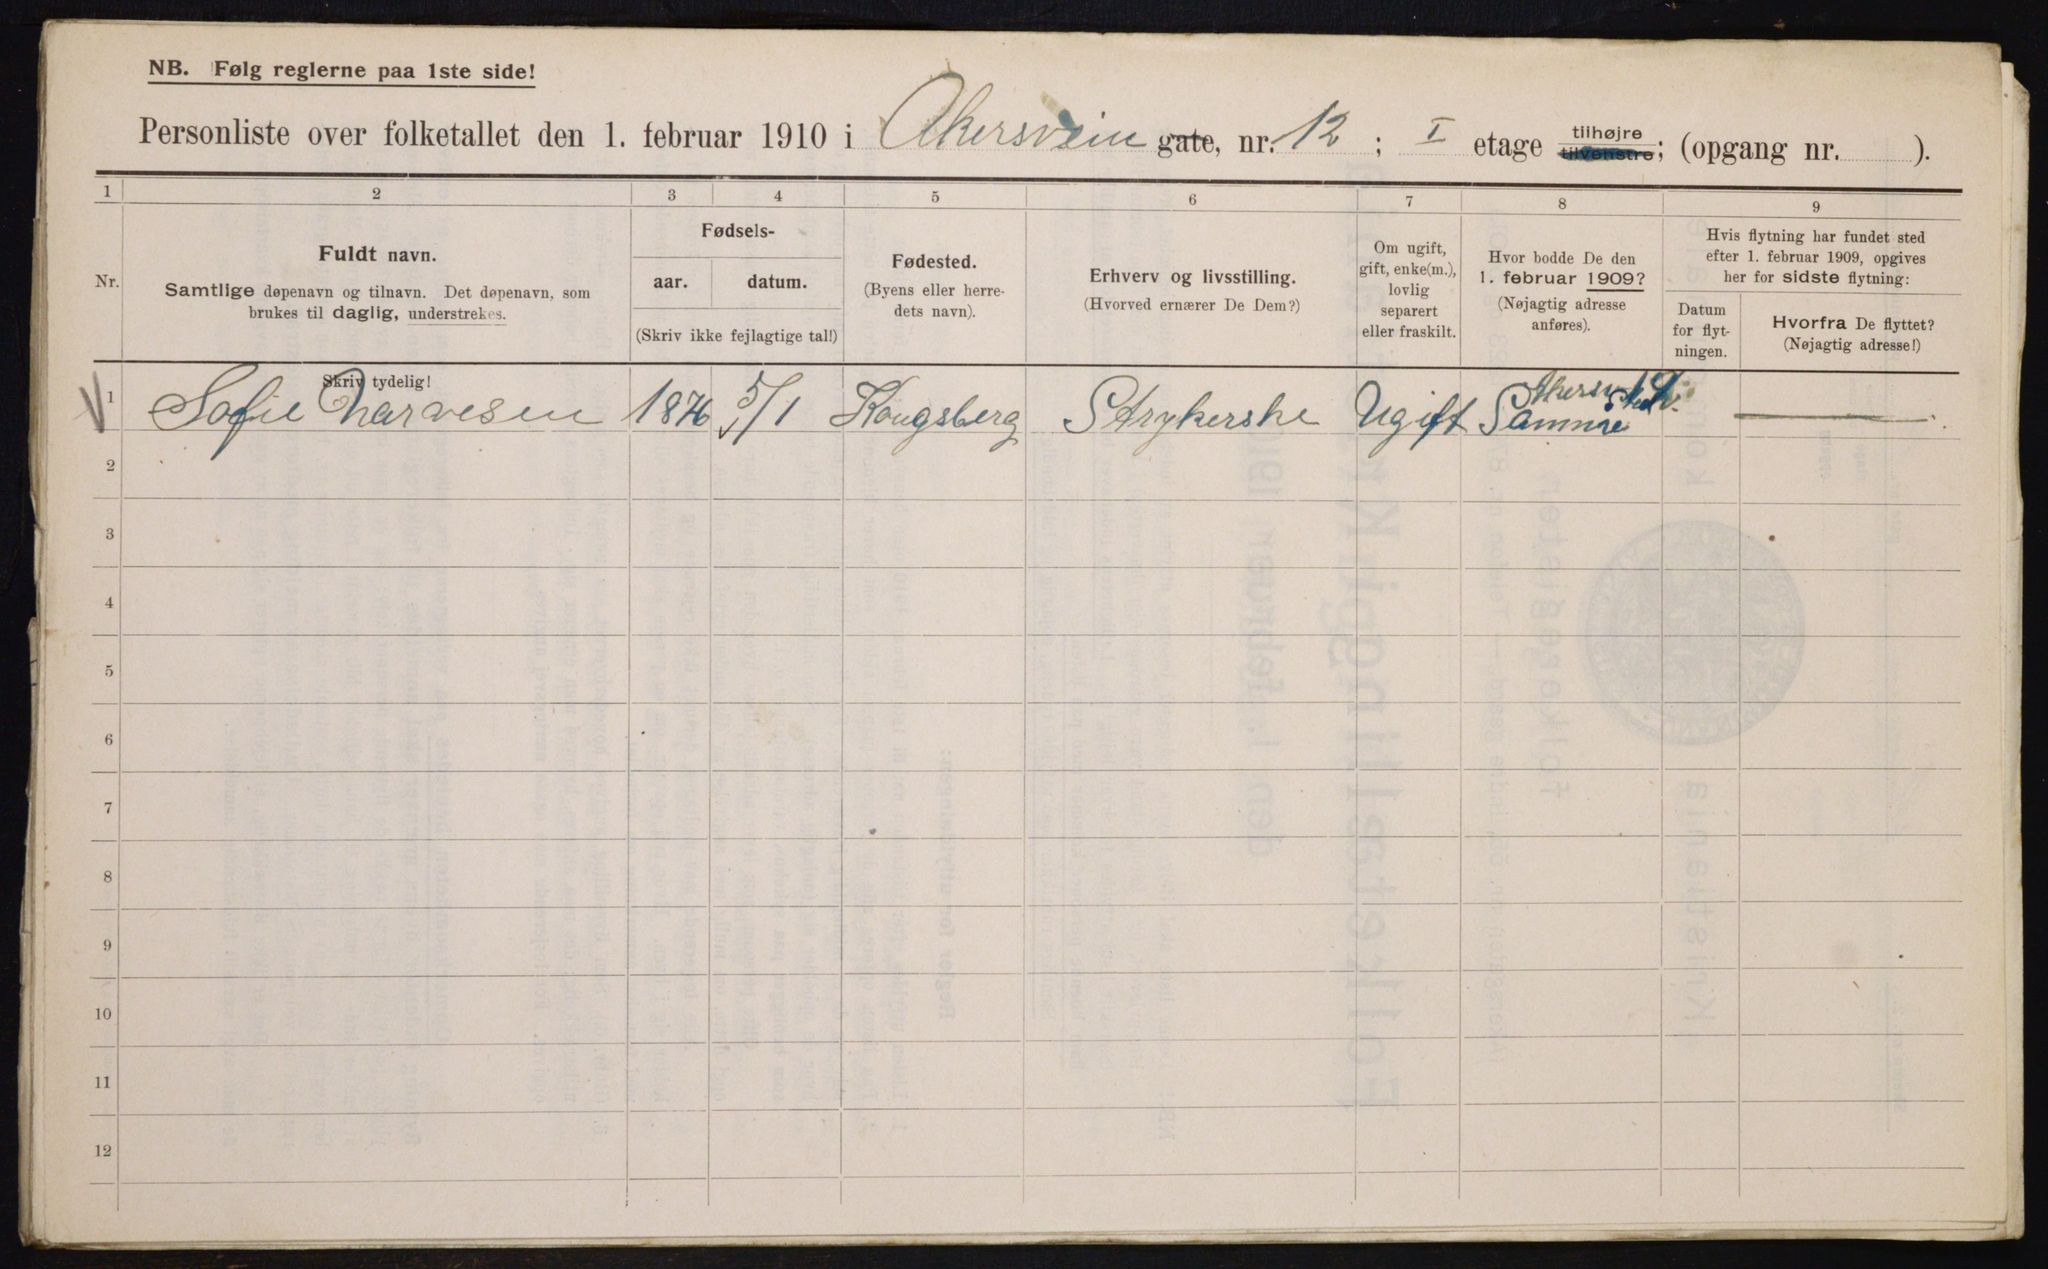 NB. Følg reglerne paa 1ste side!
Personliste over folketallet den 1. februar 1910 i Akersvein gate, nr. 12; I etage tilhøjre tilvenstre; (opgang nr. ).
1 2 3 4 5 6 7 8 9
Nr.
Fuldt navn.
Samtlige døpenavn og tilnavn. Det døpenavn, som
brukes til daglig, understrekes.
Fødsels-
aar. datum.
(Skriv ikke fejlagtige tal!)
Fødested.
(Byens eller herre-
dets navn).
Erhverv og livsstilling.
(Hvorved ernærer De Dem?)
Om ugift,
gift, enke(m.),
lovlig
separert
eller fraskilt.
Hvor bodde De den
1. februar 1909?
(Nøjagtig adresse
anføres).
Hvis flytning har fundet sted
efter 1. februar 1909, opgives
her for sidste flytning:
Datum
for flyt-
ningen.
Hvorfra De flyttet?
(Nøjagtig adresse!)
Skriv tydelig!
1 Sofie Narvesen 1876 5/1 Kongsberg Strykerske Ugift Samme Sted
2
3
4
5
6
7
8
9
10
11
12